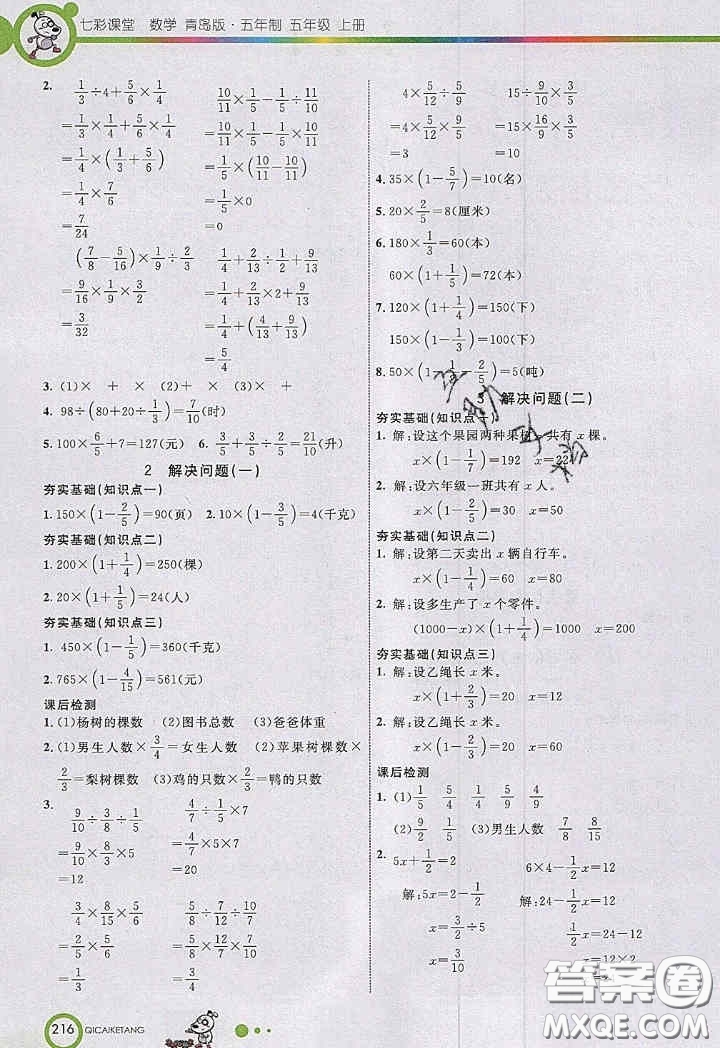 七彩课堂 数学 青岛版·五年制 五年级 上册
2. 1/3÷4+5/6×1/4 10/11×1/5−1/5÷11/10
=1/3×1/4+5/6×1/4 =10/11×1/5−1/5×10/11
=1/4×(1/3+5/6) =1/5×(10/11−10/11)
=1/4×7/6 =1/5×0
=7/24 =0
(7/8−5/16)×1/9÷2/3 1/4×2/13÷1/2+9/13
=9/16×1/9×3/2 =1/4+2/13×2+9/13
=3/32 =1/4+(4/13+9/13)
=5/4
3. (1)× + × (2)× × (3)× +
4. 98÷(80+20÷1/3)=7/10(时)
5. 100×6/5+7=127(元) 6. 3/5+3/5÷2/5=21/10(升)
2 解决问题(一)
夯实基础(知识点一)
1. 150×(1−2/5)=90(页) 2. 10×(1−3/5)=4(千克)
夯实基础(知识点二)
1. 200×(1+1/4)=250(棵)
2. 20×(1+1/5)=24(人)
夯实基础(知识点三)
1. 450×(1−1/5)=360(千克)
2. 765×(1−4/15)=561(元)
课后检测
1. (1)杨树的棵数 (2)图书总数 (3)爸爸体重
2. (1)男生人数×3/4=女生人数 (2)苹果树棵数×
2/3=梨树棵数 (3)鸡的只数×1/4=鸭的只数
3. 9/10÷3/8×5 4/7÷1/5×7
=9/10×8/3×5 =4/7×5×7
=12 =20
3/4×8/15×5/6 5/8÷7/12÷9/7
=2/5×5/6 =5/8×12/7×7/9
=1/3 =5/6
4×5/12÷5/9 15÷9/10×3/16
=4×5/12×9/5 =15×10/9×3/16
=3
4. 35×(1−5/7)=10(名)
5. 20×2/5=8(厘米)
6. 180×1/3=60(本)
60×(1+1/5)=72(本)
7. 120×(1+1/4)=150(下)
150×(1−1/3)=100(下)
8. 50×(1−1/2−2/5)=5(吨)
3 解决问题(二)
夯实基础(知识点一)
1. 解:设这个果园两种果树共有x棵。
x×(1−1/7)=192 x=224
2. 解:设六年级一班共有x人。
x×(1−2/5)=30 x=50
夯实基础(知识点二)
1. 解:设第二天卖出x辆自行车。
x×(1−1/4)=60 x=80
2. 解:设多生产了x个零件。
(1000−x)×(1+1/4)=1000 x=200
夯实基础(知识点三)
1. 解:设乙绳长x米。
x×(1+2/3)=20 x=12
2. 解:设乙绳长x米。
x×(1−2/5)=12 x=20
课后检测
1. (1)1/5 5/4 1/4 5/9 4/9
(2)9/10 1/5 (3)男生人数 7/8 8/15
2. 5x+1/2=2 6×4−1/2x=12
解:5x=2−1/2 解:24−1/2x=12
x=3/2÷5 1/2x=24−12
x=3/10
答案圈
MXQE.COM
216 QICAIKETANG